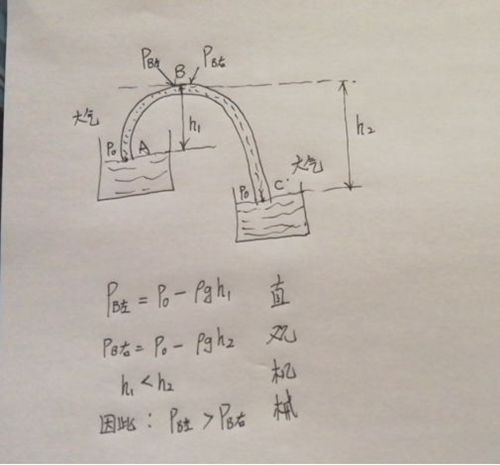 P_B左 B P_B右
大气 h₁ h₂
P₀ A 大气
P₀ C
P_B左 = P₀ - ρgh₁ 直
P_B右 = P₀ - ρgh₂ 观
h₁ < h₂ 机
因此: P_B左 > P_B右 械